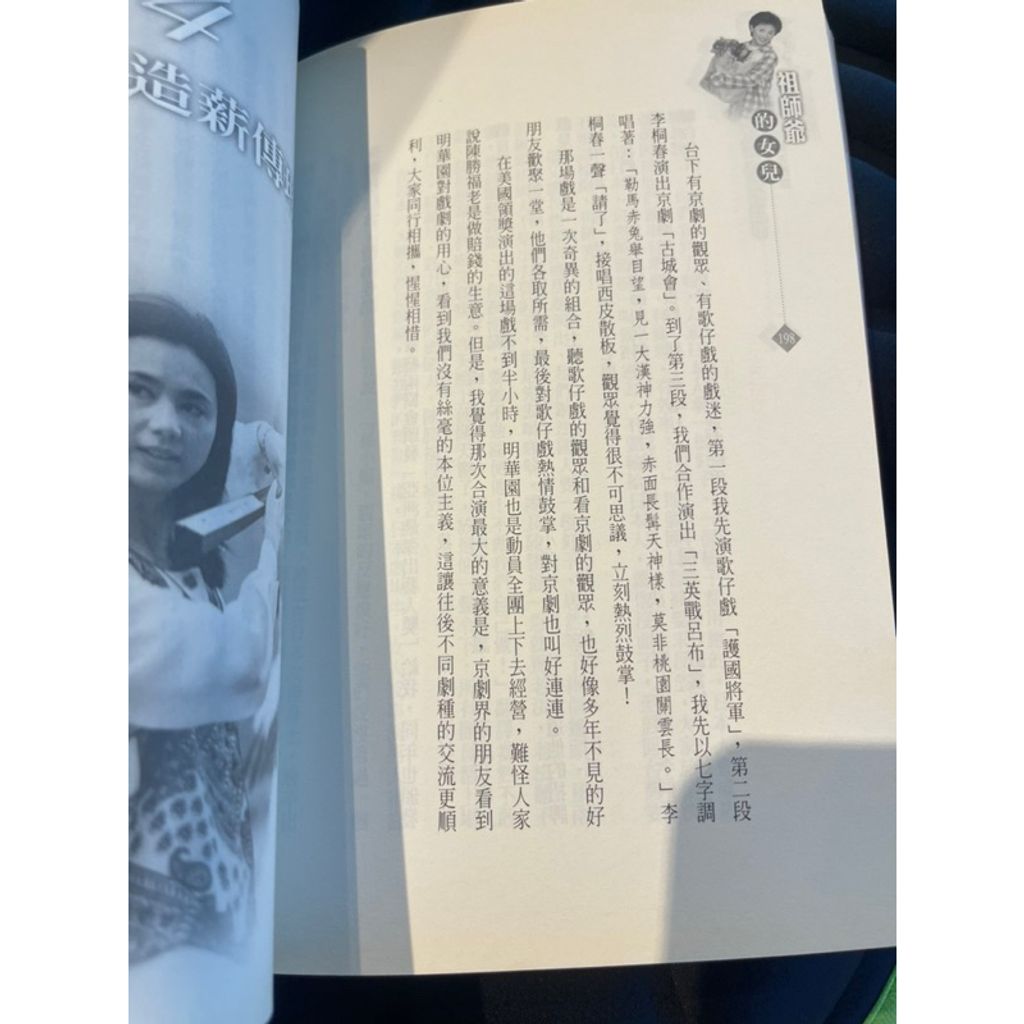 造薪傳
祖師爺
的女兒
198
台下有京劇的觀眾、有歌仔戲的戲迷，第一段我先演歌仔戲「護國將軍」，第二段
李桐春演出京劇「古城會」。到了第三段，我們合作演出「三英戰呂布」，我先以七字調
唱著：「勒馬赤兔舉目望，見一大漢神力強，赤面長髯天神樣，莫非桃園關雲長。」李
桐春一聲「請了」，接唱西皮散板，觀眾覺得很不可思議，立刻熱烈鼓掌！
那場戲是一次奇異的組合，聽歌仔戲的觀眾和看京劇的觀眾，也好像多年不見的好
朋友歡聚一堂，他們各取所需，最後對歌仔戲熱情鼓掌，對京劇也叫好連連。
在美國領獎演出的這場戲不到半小時，明華園也是動員全團上下去經營，難怪人家
說陳勝福老是做賠錢的生意。但是，我覺得那次合演最大的意義是，京劇界的朋友看到
明華園對戲劇的用心，看到我們沒有絲毫的本位主義，這讓往後不同劇種的交流更順
利，大家同行相攜，惺惺相惜。